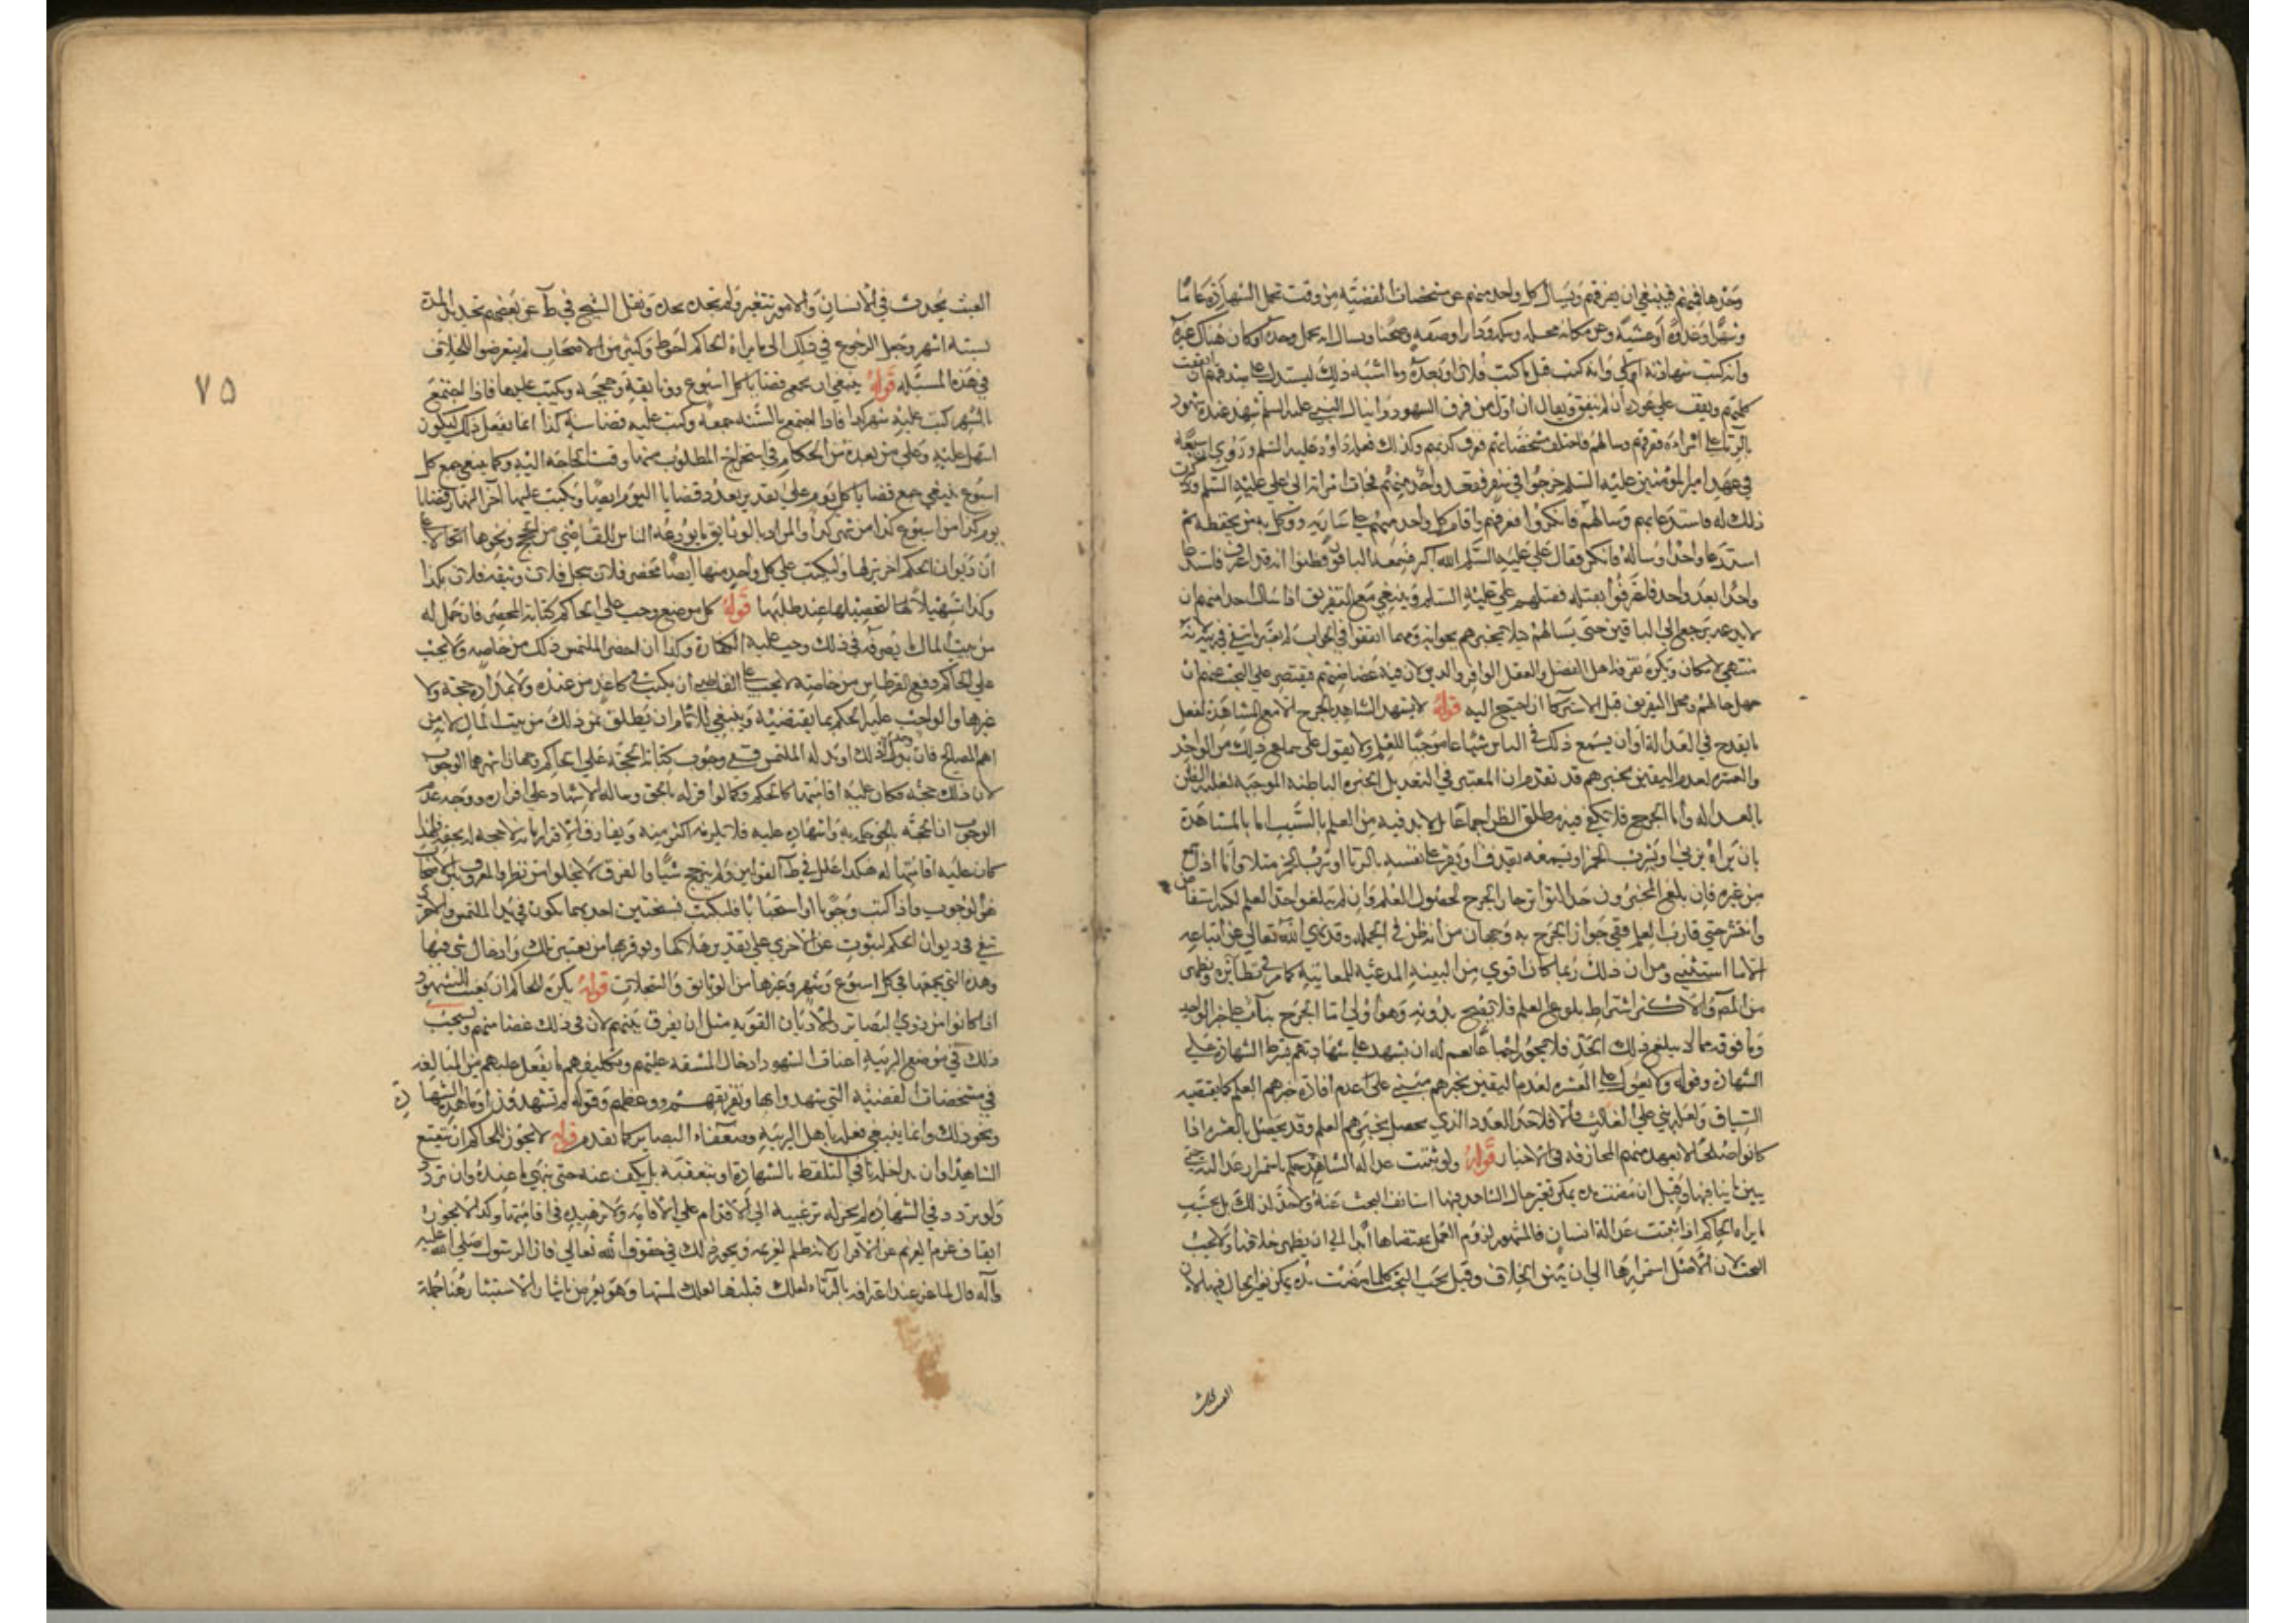 وحدها فيهم فينبغي ان يفرقهم ويسأل كل واحد منهم عن مشخصات القضية من وقت تحمل الشهادة عاما
وشهرا وغدوة او عشية وعن مكانه محلة وسكة ودارا وصفة وصحنا ويسأل انه تحمل وحده او كان هناك غيره
وانه كتب شهادته او لا وانه كتب قبل ما كتب فلان او بعده وما اشبه ذلك ليستدل على صدقهم ان اتفقت
كلمتهم ويقف على عورة ان لم يتفق ويقال ان اول من فرق الشهود دانيال النبي عليه السلم شهد عنده شهود
بالزنا على امراة ففرقهم وسالهم فاختلف مشخصاتهم فعرف كذبهم وكذلك فعل داود عليه السلم وروي ان سبعة
في عهد امير المؤمنين عليه السلم خرجوا في سفر ففقد واحد منهم فجاءت امراته الى علي عليه السلم وذكرت
ذلك له فاستدعاهم وسالهم فانكروا ففرقهم واقام كل واحد منهم على سارية ووكل به من يحفظه ثم
استدعا واحدا وساله فانكر فقال علي عليه السلم الله اكبر فسمعه الباقون فظنوا انه قد اعترف فاستدعا
واحدا بعد واحد فاعترفوا بقتله فقتلهم علي عليه السلم وينبغي مع التفريق اذا سال احد منهم ان
لا يدعه يرجع الى الباقين حتى يسالهم ليلا يخبرهم بجوابه ومهما اتفقوا في الجواب
منتهى الامكان ويكره تفرقة اهل الفضل والعقل الوافر والدين لان فيه غضاضة بهم فيقتصر على البحث عنهم ان
جهل حالهم ومحل التفريق قبل الاستزكا ان احتيج اليه قوله لا يشهد الشاهد بالجرح الا مع المشاهدة لفعل
ما يقدح في العدالة او ان يشيع ذلك في الناس شياعا موجبا للعلم ولا يعول على سماع ذلك من الواحد
والعشرة لعدم اليقين بخبرهم قد تقدم ان المعتبر في التعديل الخبرة الباطنة الموجبة لغلبة الظن
بالعدالة واما الجرح فلا يكفي فيه مطلق الظن اجماعا بل لا بد فيه من العلم بالسبب اما بالمشاهدة
بان يراه يزني او يشرب الخمر او يسمعه يقذف او يقر على نفسه بالزنا او شرب الخمر مثلا واما اذا سمع
من غيره فان بلغ المخبرون حد التواتر جاز الجرح لحصول العلم وان لم يبلغوا حد العلم لكنه استفاض
وانتشر حتى قارب العلم ففي جواز الجرح به وجهان من انه ظن في الجملة وقد نهى الله تعالى عن اتباعه
الا ما استثنى ومن ان ذلك ربما كان اقوى من البينة المدعية للمعاينة كما مر في نظايره وظهر
من المص والاكثر اشتراط بلوغ العلم فلا يصح بدونه وهو اولى اما الجرح بناء على خبر الواحد
وما فوقه مما لا يبلغ ذلك الحد فلا يجوز اجماعا نعم له ان يشهد على شهادتهم بشرط الشهادة على
الشهادة وقوله ولا يعول على العشرة لعدم اليقين بخبرهم مبني على عدم افادة خبرهم العلم كما يقتضيه
السياق ولعله بنى على الغالب والا فلا حد للعدد الذي يحصل بخبرهم العلم وقد يحصل بالعشرة اذا
كانوا صلحا لا يعهد منهم المجازفة في الاخبار قوله ولو ثبتت عدالة الشاهد حكم باستمرار عدالته حتى
يبين ما ينافيها وقيل ان مضت مدة يمكن تغير حال الشاهد فيها استانف البحث عنه ولا حد لذلك بل بحسب
ما يراه الحاكم اذا ثبتت عدالة انسان فالمشهور لزوم العمل بمقتضاها ابدا الى ان يظهر خلافها ولا يجب
البحث لان الاصل استمرارها الى ان يتبين الخلاف وقيل يجب البحث كلما مضت مدة يمكن تغير الحال فيها لان
العيب يحدث
العيب يحدث في الانسان والامور تتغير ولم تحده بحده ونقل الشيخ في ط عن بعضهم تحديد المدة
بستة اشهر وجعل الرجوع في ذلك الى ما يراه الحاكم احوط وكثير من الاصحاب لم يتعرضوا للخلاف
في هذه المسئلة قوله ينبغي ان يجمع قضايا كل اسبوع ووثايقه وحججه ويكتب عليها فاذا اجتمع
بالشهر كتب عليه شهر كذا فاذا اجتمع بالسنة جمعه وكتب عليه قضا سنة كذا انما يفعل ذلك ليكون
اسهل عليه وعلى من بعده من الحكام في استخراج المطلوب منها وقت الحاجة اليه وكما ينبغي جمع كل
اسبوع ينبغي جمع قضايا كل يوم على تقدير تعدد قضايا اليوم ايضا ويكتب عليها آخر النهار قضايا
يوم كذا من اسبوع كذا من شهر كذا والمراد بالوثايق ما يودعه الناس للقاضي من الحجج ونحوها
ان ديوان الحكم احرز لها وليكتب على كل واحد منها ايضا محضر فلان سجل فلان وثيقة فلان بكذا
وكذا تسهيلا لتحصيلها عند طلبها قوله كل موضع وجب على الحاكم كتابة المحضر فان حمل له
من بيت المال ما يصرفه في ذلك وجب عليه الكتابة وكذا ان احضر الملتمس ذلك من خاصه ولا يجب
على الحاكم دفع القرطاس من خاصته لا يجب على القاضي ان يكتب في كاغذ من عنده ولا بمداد حجة ولا
غيرها والواجب عليه الحكم بما يقتضيه وينبغي للامام ان يطلق ثمن ذلك من بيت المال لانه من
اهم المصالح فان بذل ذلك او بذله الملتمس ففي وجوب كتابة الحجة على الحاكم وجهان اشهرهما الوجوب
لان ذلك حجة فكان عليه اقامتها كالحكم وكما لو اقر له بالحق وساله الاشهاد على اقراره ووجه عدم
الوجوب ان الحجة بالحق حكمه به واشهاده عليه فلا يلزمه اكثر منه ويفارق الاقرار بانه لا حجة له بحقه فلهذا
كان عليه اقامتها له هكذا علل في ط القولين ولم يرجح شيا والفرق لا يخلو من نظر والمعروف بين الاصحاب
هو الوجوب واذا كتب وجوبا او استحبابا فليكتب نسختين احديهما تكون في يد الملتمس والاخرى
تبقى في ديوان الحكم لتنوب عن الاخرى على تقدير هلاكها ويؤمن بها من تغيير تلك وادخال شي فيها
وهذه التي يجمعها في كل اسبوع وشهر وغيرها من الوثايق والسجلات قوله يكره للحاكم ان يعنت الشهود
اذا كانوا من ذوي البصاير والاديان القوية مثل ان يفرق بينهم لان في ذلك غضا منهم ويستحب
ذلك في موضع الريبة اعنات الشهود ادخال المشقة عليهم وتكليفهم ما يثقل عليهم من المبالغة
في مشخصات القضية التي شهدوا بها وتفريقهم ووعظهم وقوله لم تشهدون او ما هذه الشهادة
ونحو ذلك وانما ينبغي فعله باهل الريبة وضعفاء البصاير كما تقدم قوله لا يجوز للحاكم ان يتعتع
الشاهد وان يداخله في التلفظ بالشهادة او يتعقبه بل يكف عنه حتى ينهي ما عنده وان تردد
ولو تردد في الشهادة لم يجز له ترغيبه الى الاقدام على الاقامة ولا تزهيده في اقامتها وكذا لا يجوز
ايقاف عزم الغريم عن الاقرار لانه ظلم لغريمه ويجوز ذلك في حقوق الله تعالى فان الرسول صلى الله عليه
وآله قال لماعز عند اعترافه بالزناء لعلك قبلتها لعلك لمستها وهو يعرض بايثار الاستتار
٧٥